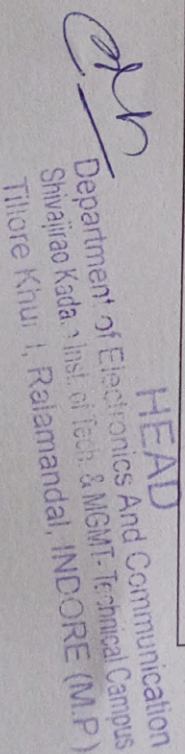 HEAD
Department of Electronics And Communication
Shivajirao Kada Inst. of Tech. & MGMT-Technical Campus
Tillore Khur Ralamandal, INDORE (M.P)